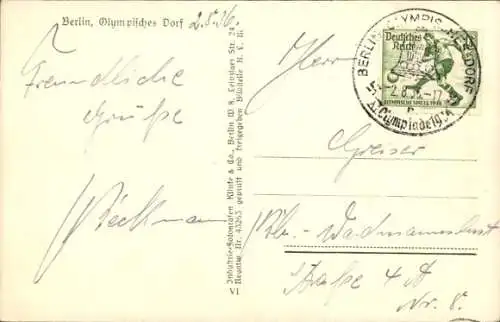 Berlin, Olympisches Dorf 2.8.36.
Freundliche
Grüße
Beckmann
Industrie-Fotografen Klinke & Co., Berlin W 8, Leipziger Str. 24
Reentw. Nr. 43263 geprüft und freigegeben Bildstelle R. L. M.
VI
Deutsches
Reich
OLYMPISCHE SPIELE 1936
BERLIN OLYMPISCHES DORF
2.8.36.-17
XI. Olympiade 1936
Herr
Greiser
Bln.-Waidmannslust
Straße 4
Nr. 8.